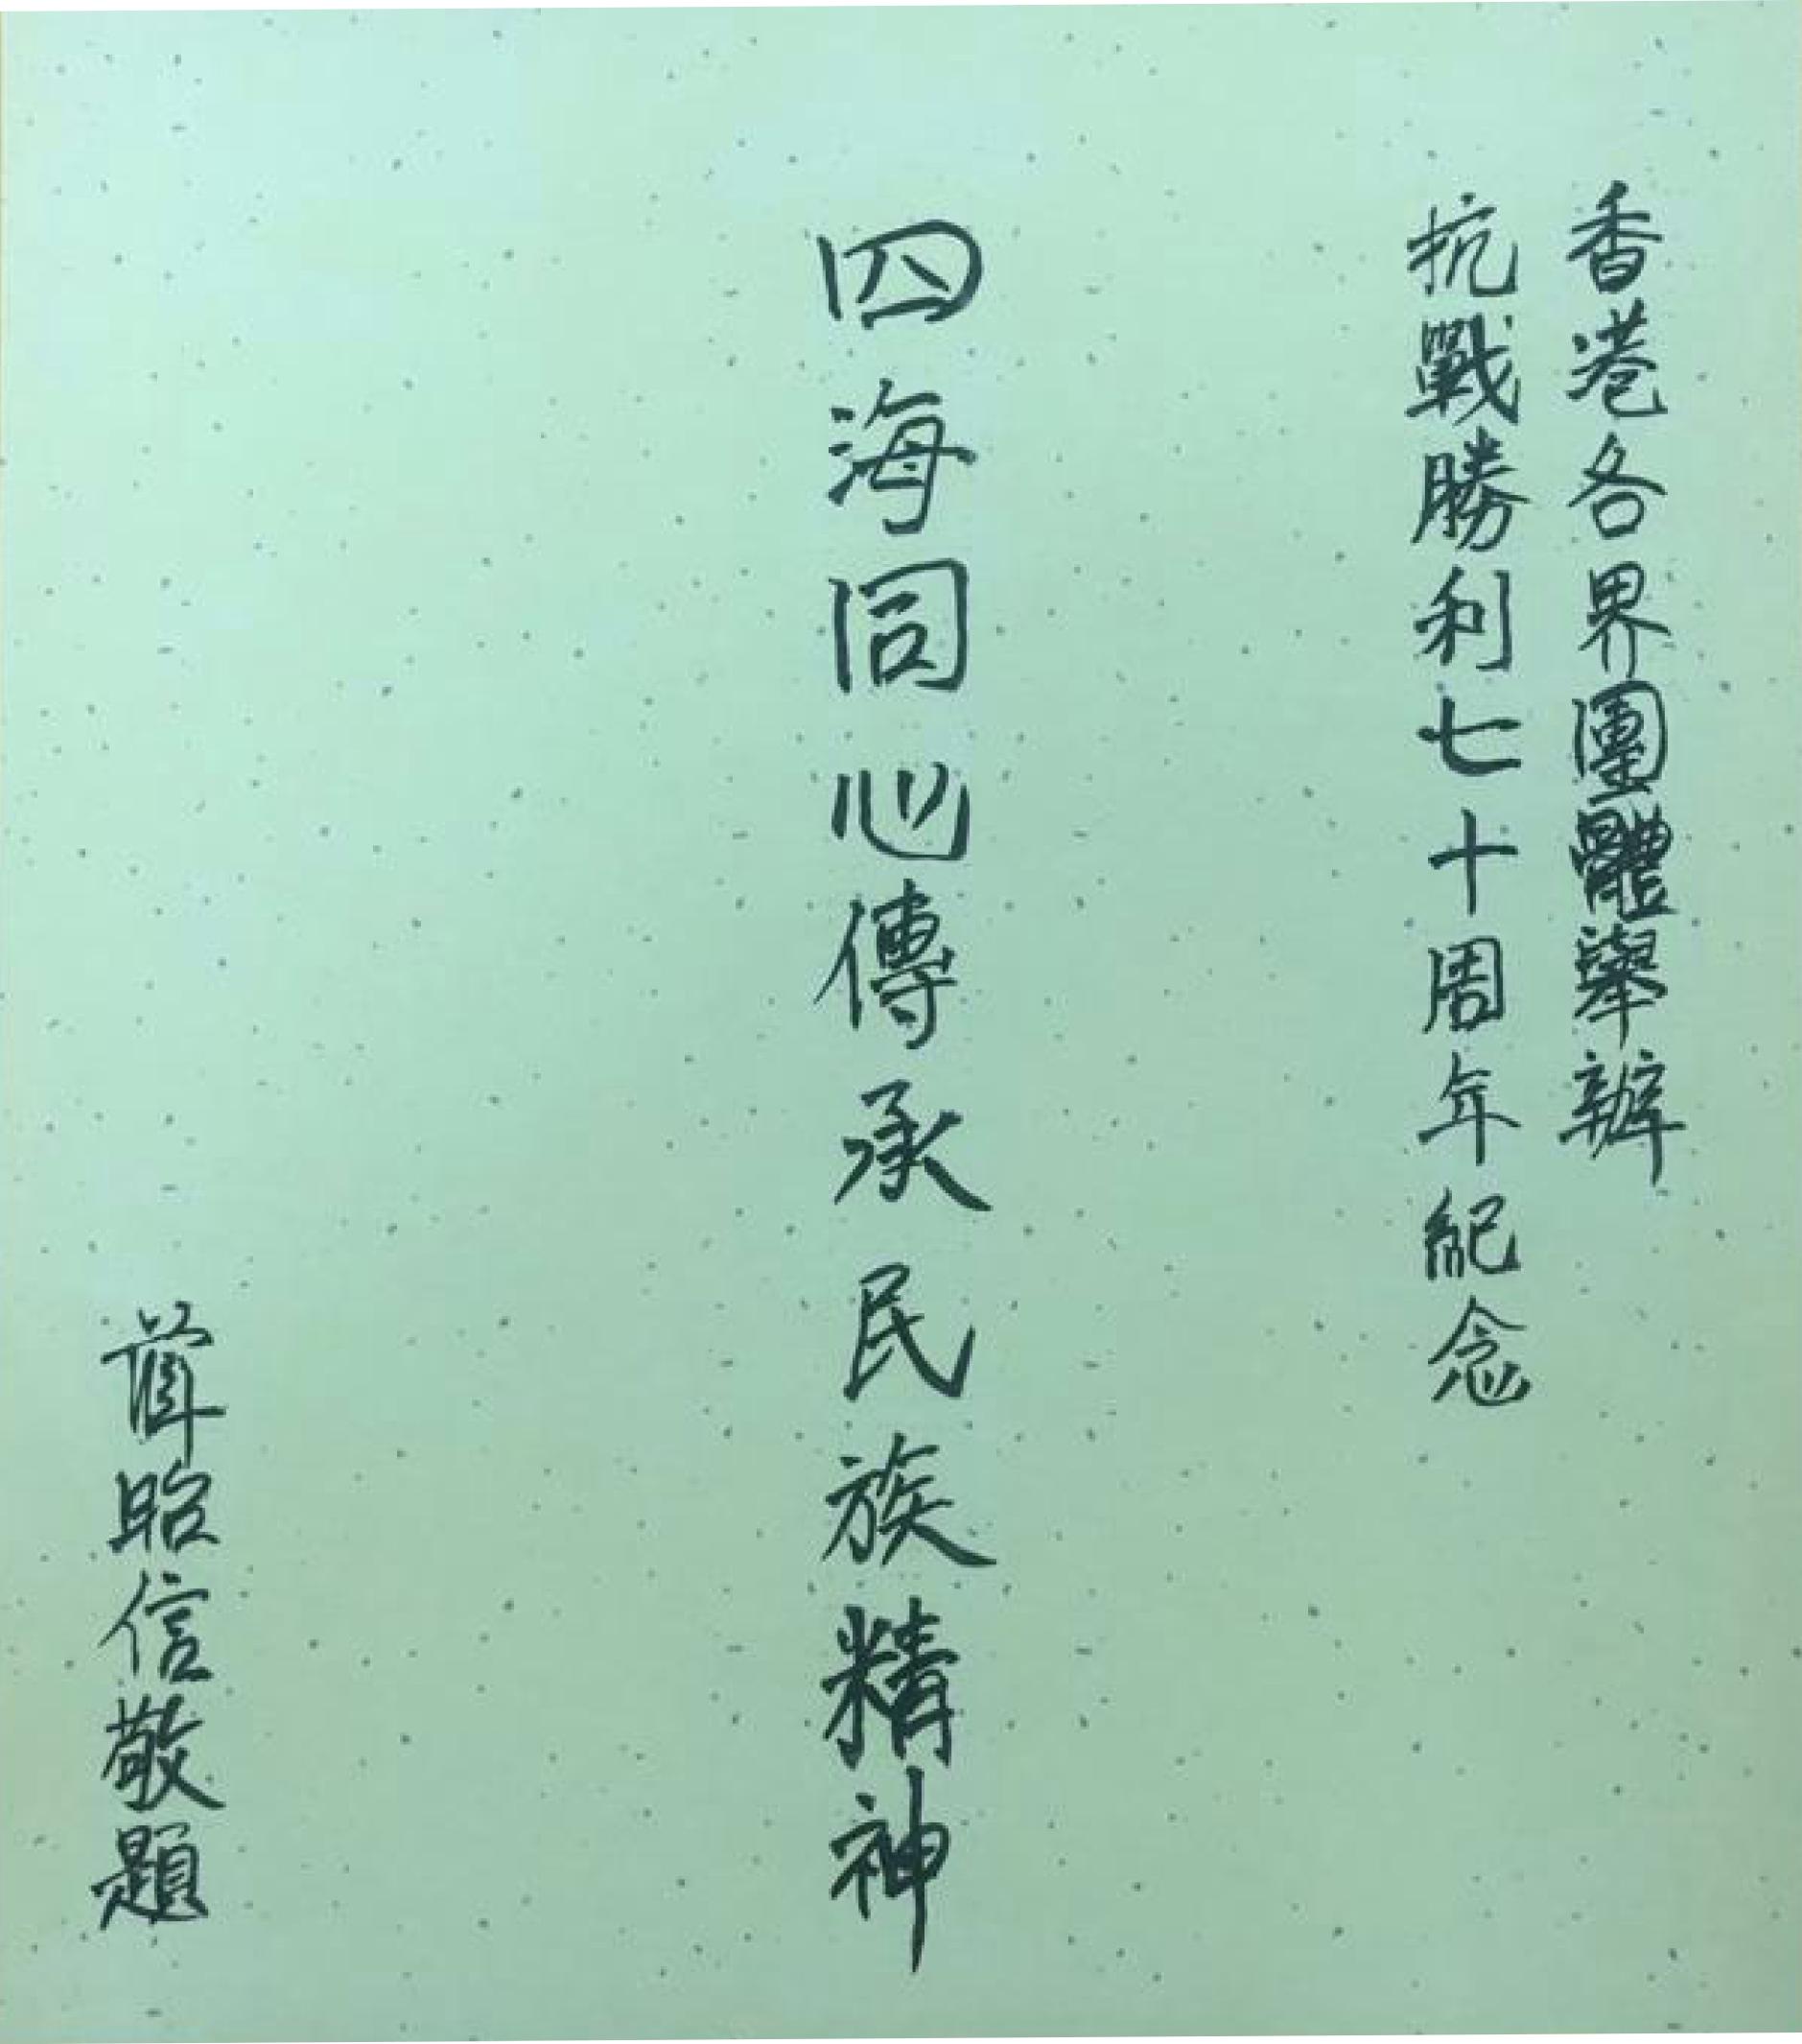 香港各界團體舉辦
抗戰勝利七十周年紀念
四海同心傳承民族精神
昭信敬題